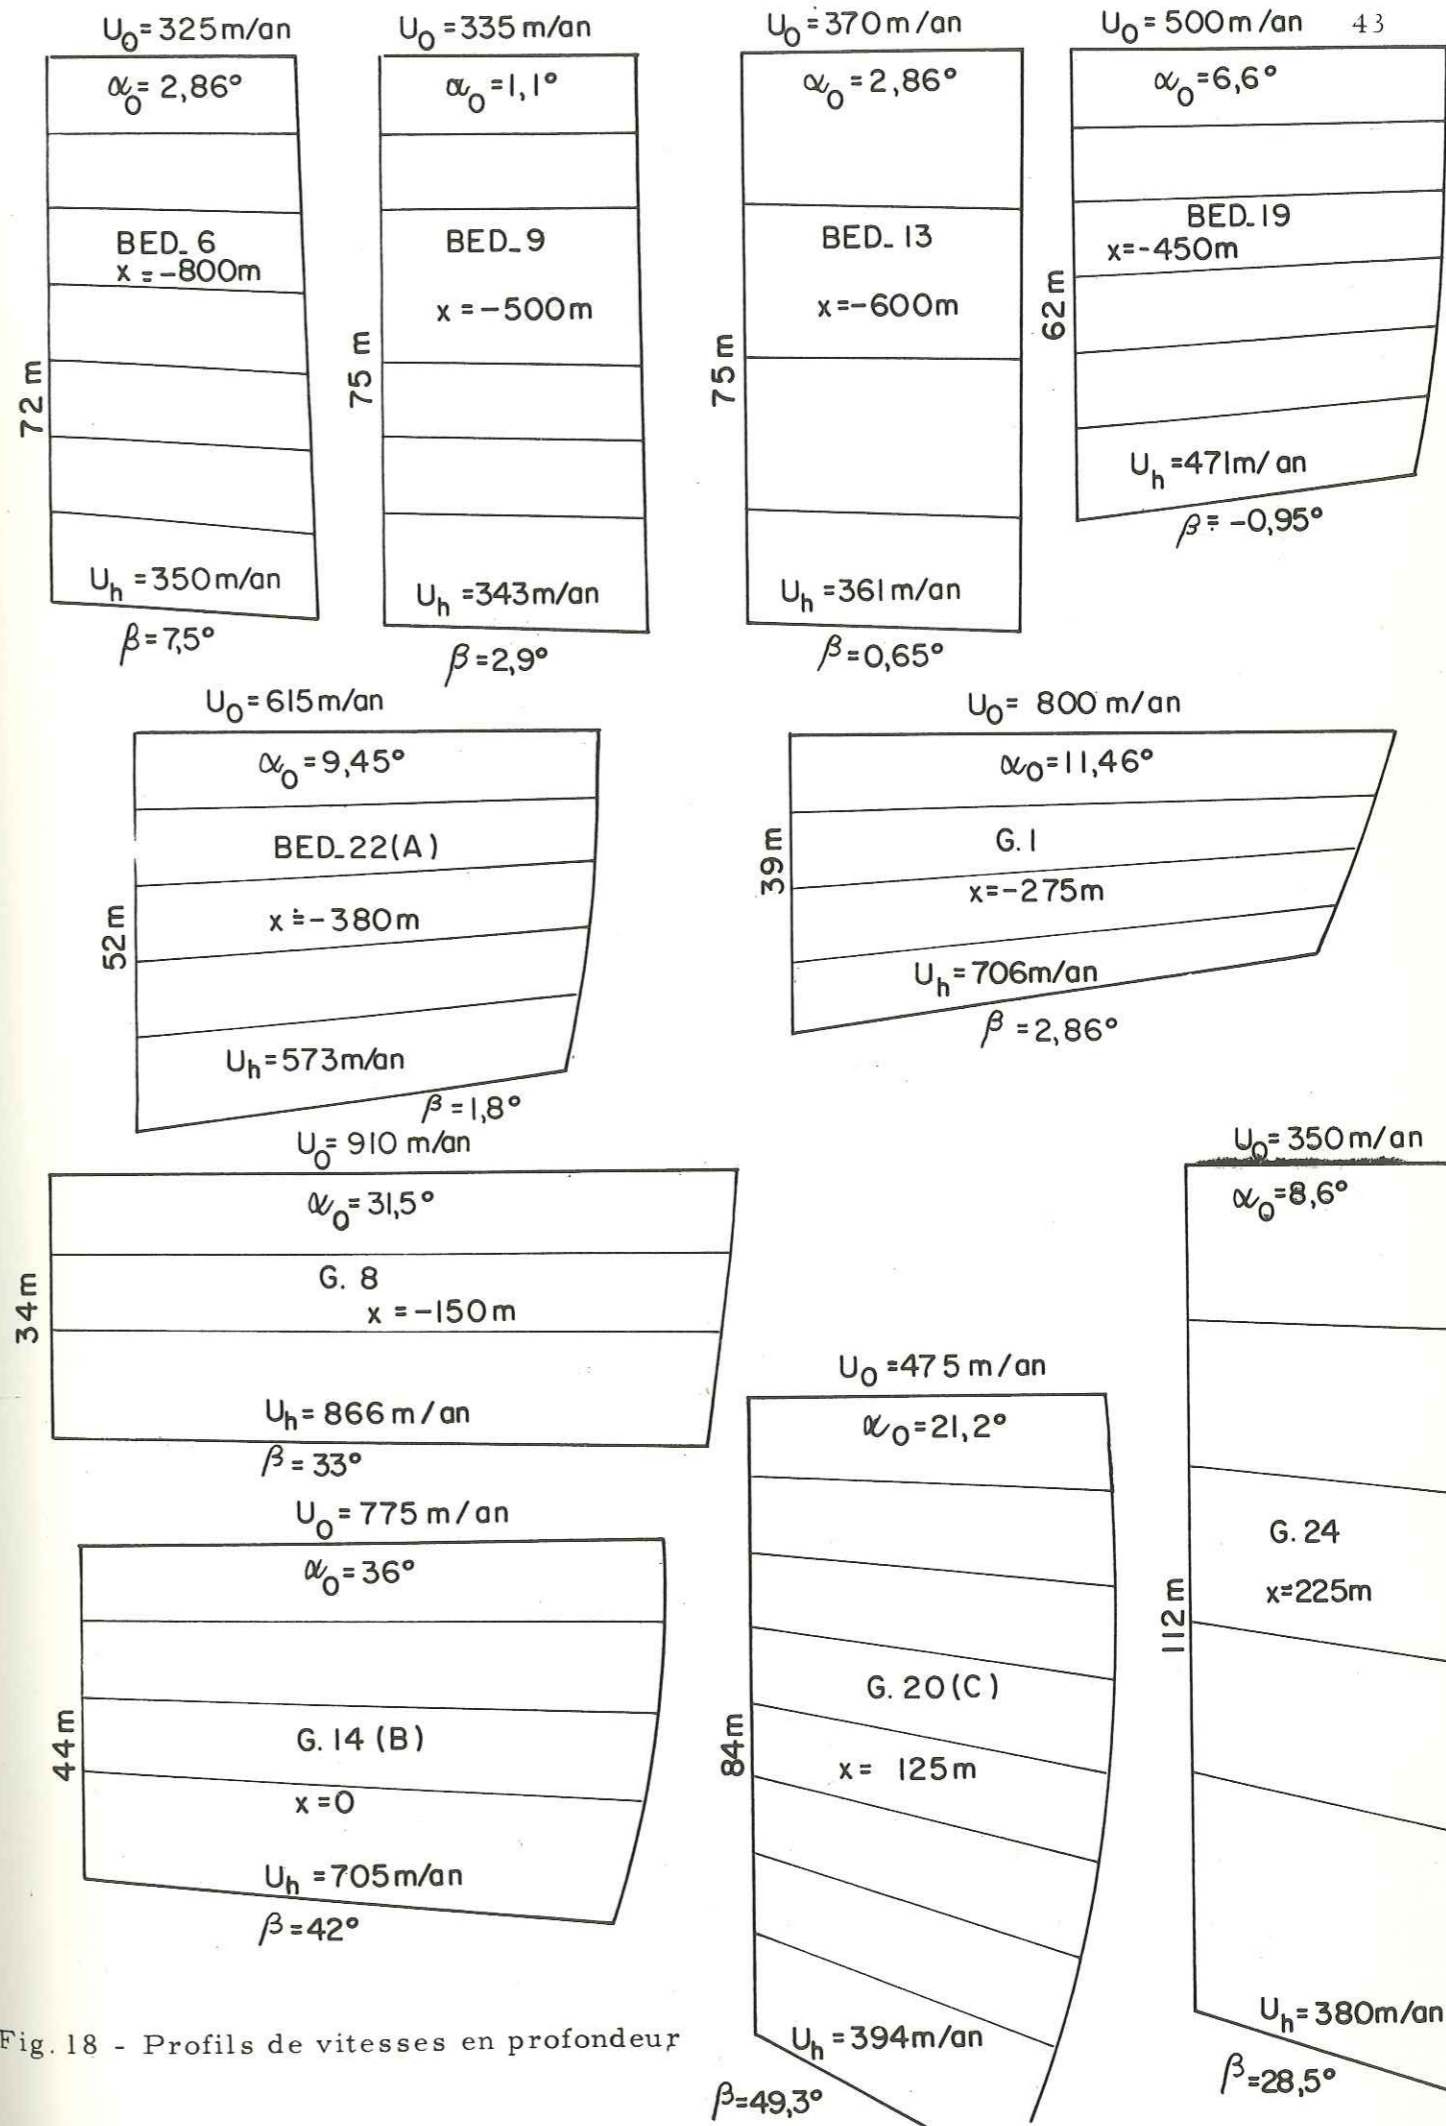 43
U₀=325m/an
α₀=2,86°
BED_6
x=-800m
72m
Uh=350m/an
β=7,5°
U₀=335m/an
α₀=1,1°
BED_9
x=-500m
75 m
Uh=343m/an
β=2,9°
U₀=370m/an
α₀=2,86°
BED_13
x=-600m
75m
Uh=361m/an
β=0,65°
U₀=500m/an
α₀=6,6°
BED_19
x=-450m
62m
Uh=471m/an
β=-0,95°
U₀=615m/an
α₀=9,45°
BED_22(A)
x=-380m
52m
Uh=573m/an
β=1,8°
U₀=800 m/an
α₀=11,46°
G.1
x=-275m
39m
Uh=706m/an
β=2,86°
U₀=910 m/an
α₀=31,5°
G. 8
x=-150m
34m
Uh=866m/an
β=33°
U₀=775 m/an
α₀=36°
G.14 (B)
x=0
44m
Uh=705m/an
β=42°
U₀=475 m/an
α₀=21,2°
G. 20(C)
x= 125m
84m
Uh=394m/an
β=49,3°
U₀=350m/an
α₀=8,6°
G. 24
x=225m
112m
Uh=380m/an
β=28,5°
Fig. 18 - Profils de vitesses en profondeur